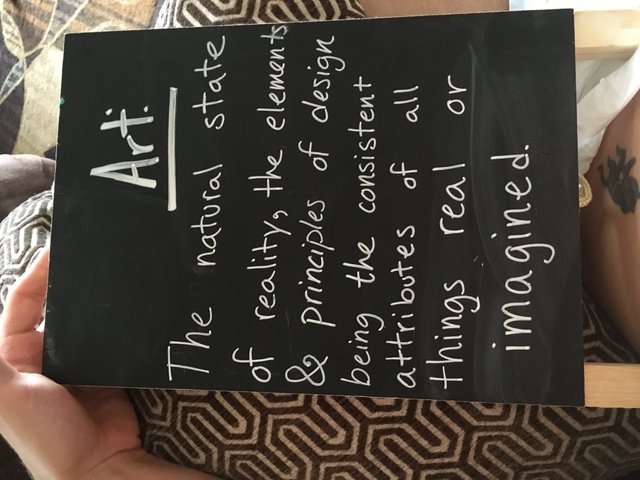 Art:
The natural state
of reality, the elements
& principles of design
being the consistent
attributes of all
things real or
imagined.